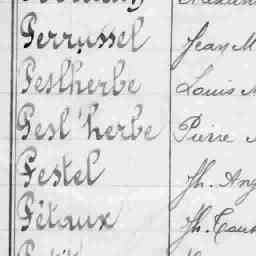 Perrussel Jean M
Peslherbe Louis
Pesl'herbe Pierre
Pestel Jh. Ang
Pétaux Jh.